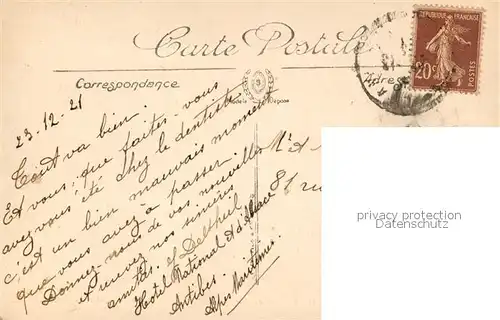 Carte Postale
RÉPUBLIQUE FRANÇAISE
20c
POSTES
Correspondance
Adresse
Modèle Déposé
23-12-21
Tout va bien.
Et vous, que faites-vous
avez vous été chez le dentiste
c'est un bien mauvais moment
que vous avez à passer.
Donnez nous de vos nouvelles
et recevez nos sincères
amitiés.
Hotel National & d'Alsace
Antibes.
Alpes Maritimes.
81 ru
privacy protection
Datenschutz